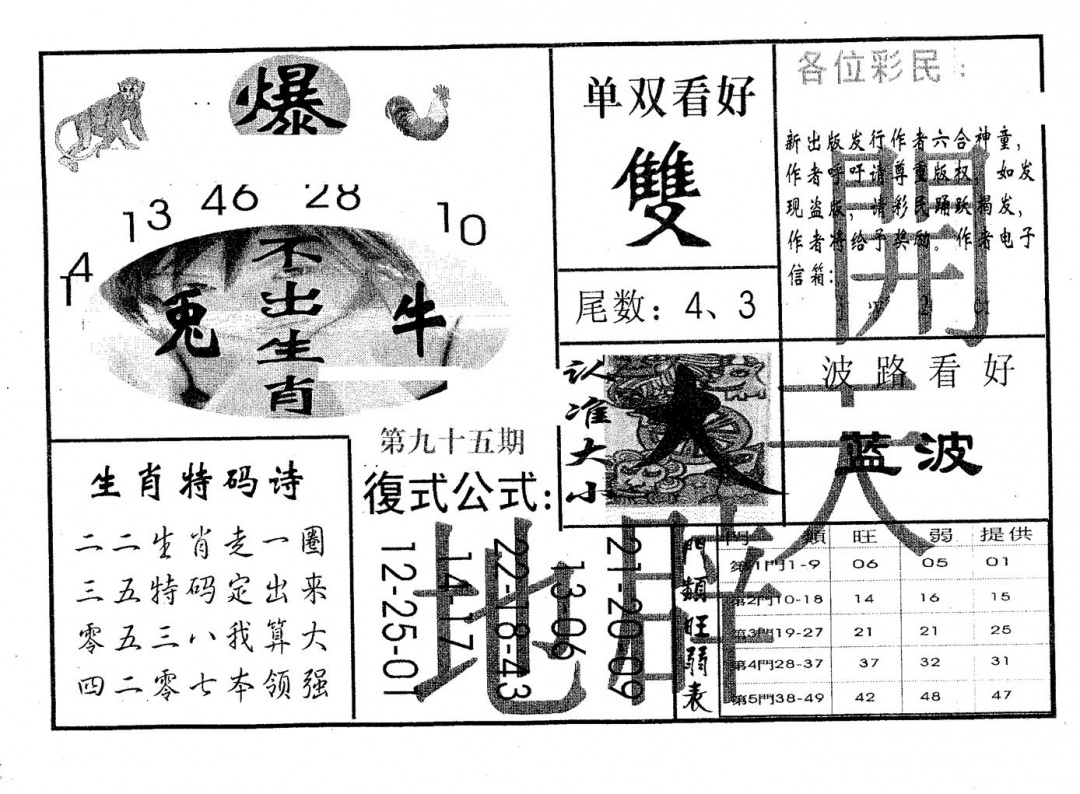 爆
14 13 46 28 10
不出生肖
兔 牛
单双看好
雙
尾数：4、3
各位彩民：
新出版发行作者六合神童，
作者呼吁请尊重版权，如发
现盗版，请彩民踊跃揭发，
作者将给予奖励。作者电子
信箱：
開天闢地
认准大小
大
波路看好
蓝波
生肖特码诗
二二生肖走一圈
三五特码定出来
零五三八我算大
四二零七本领强
第九十五期
復式公式：
12-25-01
14-17
22-18-43
13-06
21-20-09
門類旺弱表
門類 旺 弱 提供
第1門1-9 06 05 01
第2門10-18 14 16 15
第3門19-27 21 21 25
第4門28-37 37 32 31
第5門38-49 42 48 47